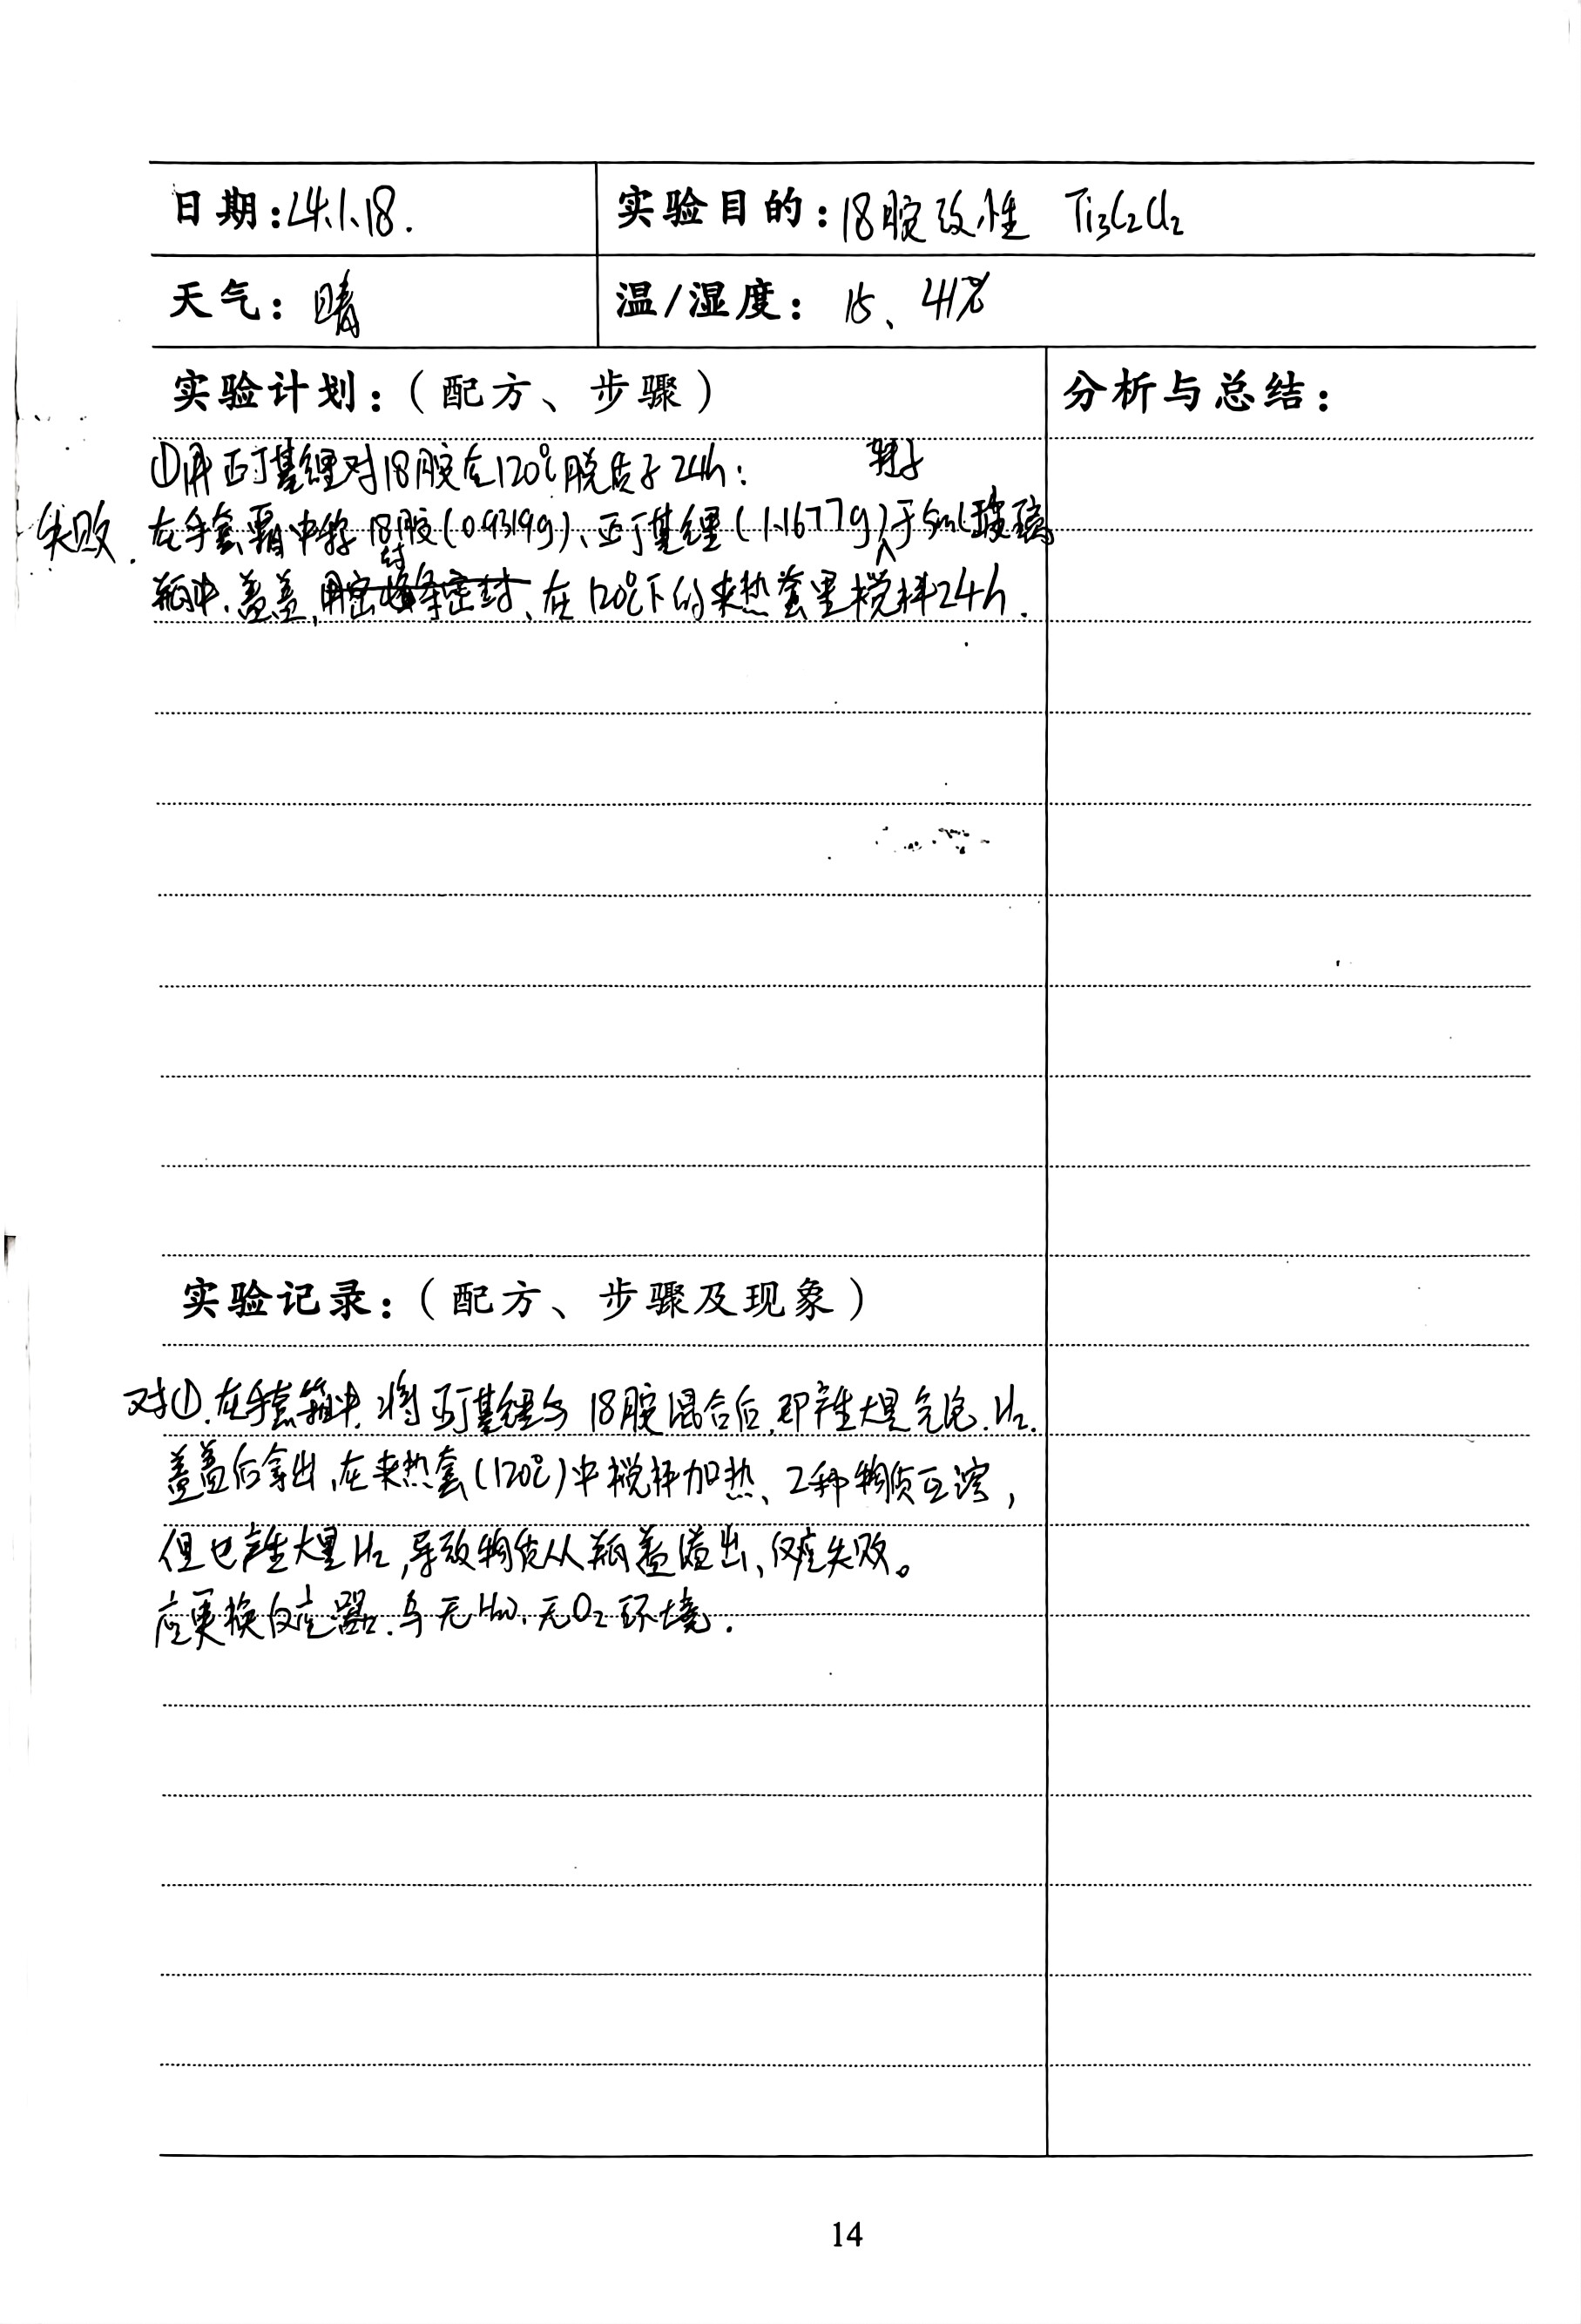 日期：24.1.18.
实验目的：18胺改性 Ti3C2Cl2
天气：晴
温/湿度：15、41%
实验计划：（配方、步骤）
分析与总结：
①用正丁基锂对18胺在120℃脱质子24h：
转子
失败.
在手套箱中称18胺(0.9319g)、正丁基锂(1.1677g)于5ml玻璃
瓶中、盖盖，在120℃下的夹热套里搅拌24h.
实验记录：（配方、步骤及现象）
对①.在手套箱中.将正丁基锂与18胺混合后,即产生大量气泡.H2.
盖盖后拿出,在夹热套(120℃)中搅拌加热、2种物质互溶，
但也产生大量H2,导致物质从瓶盖溢出、反应失败。
应更换反应器.与无H2O、无O2环境.
14